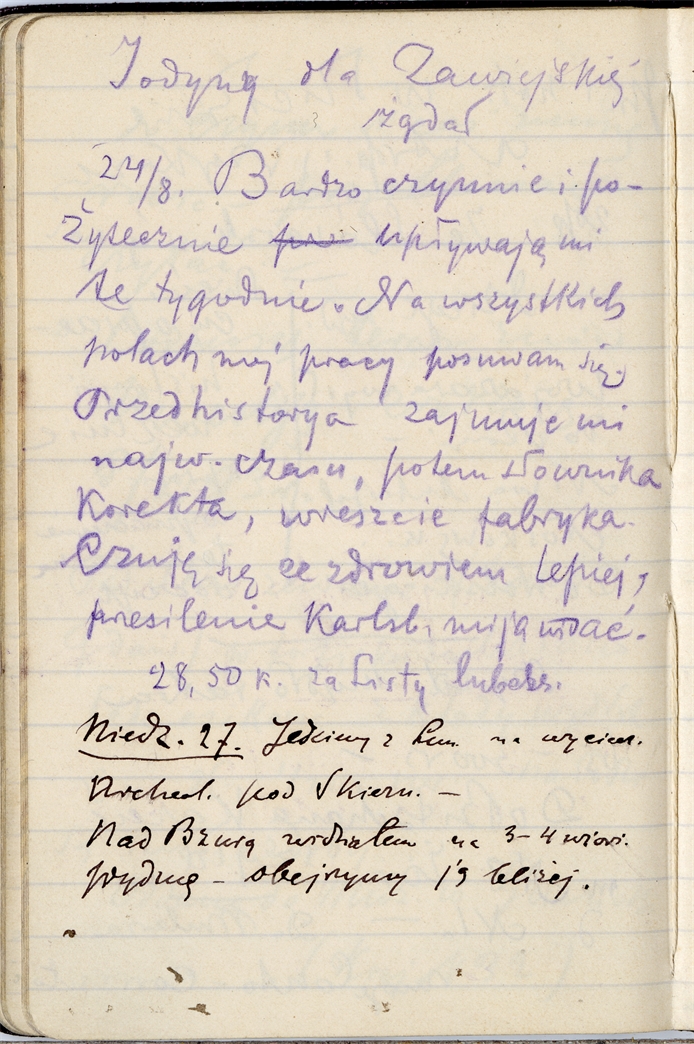 Jodynę dla Zawiejskiej
żądał
24/8. Bardzo czynnie i po-
żytecznie upływają mi
te tygodnie. Na wszystkich
polach mej pracy posuwam się.
Przedhistorya zajmuje mi
najw. czasu, potem Słownika
Korekta, wreszcie fabryka.
Czuję się ze zdrowiem lepiej,
przesilenie Karlsb. mija widać.
28,50 k. za Listy lubels.
Niedz. 27. Jedziemy z Lun. na wyciecz.
Archeol. pod Skiern. –
Nad Bzurą widziałem na 3–4 wiors.
wydmę – obejrzymy ją bliżej.